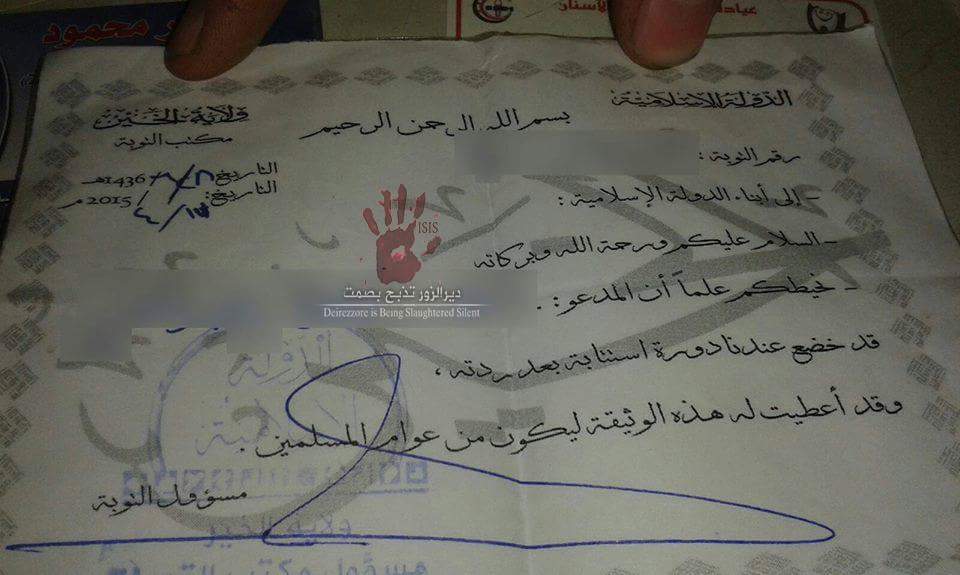 محمود
عيادة
الأسنان
الدولة الإسلامية
ولاية الخير
مكتب التوبة
بسم الله الرحمن الرحيم
رقم التوبة :
التاريخ ١٤36هـ
التاريخ: ١٧/ ٤/ 2015 م
- إلى أبناء الدولة الإسلامية :
- السلام عليكم ورحمة الله وبركاته
- نحيطكم علماً أن المدعو :
ISIS
ديرالزور تذبح بصمت
Deirezzore is Being Slaughtered Silent
قد خضع عندنا دورة استتابة بعد ردته ،
وقد أعطيت له هذه الوثيقة ليكون من عوام المسلمين .
الدولة
الإسلامية
مسؤول التوبة
ولاية الخير
مسؤول مكتب